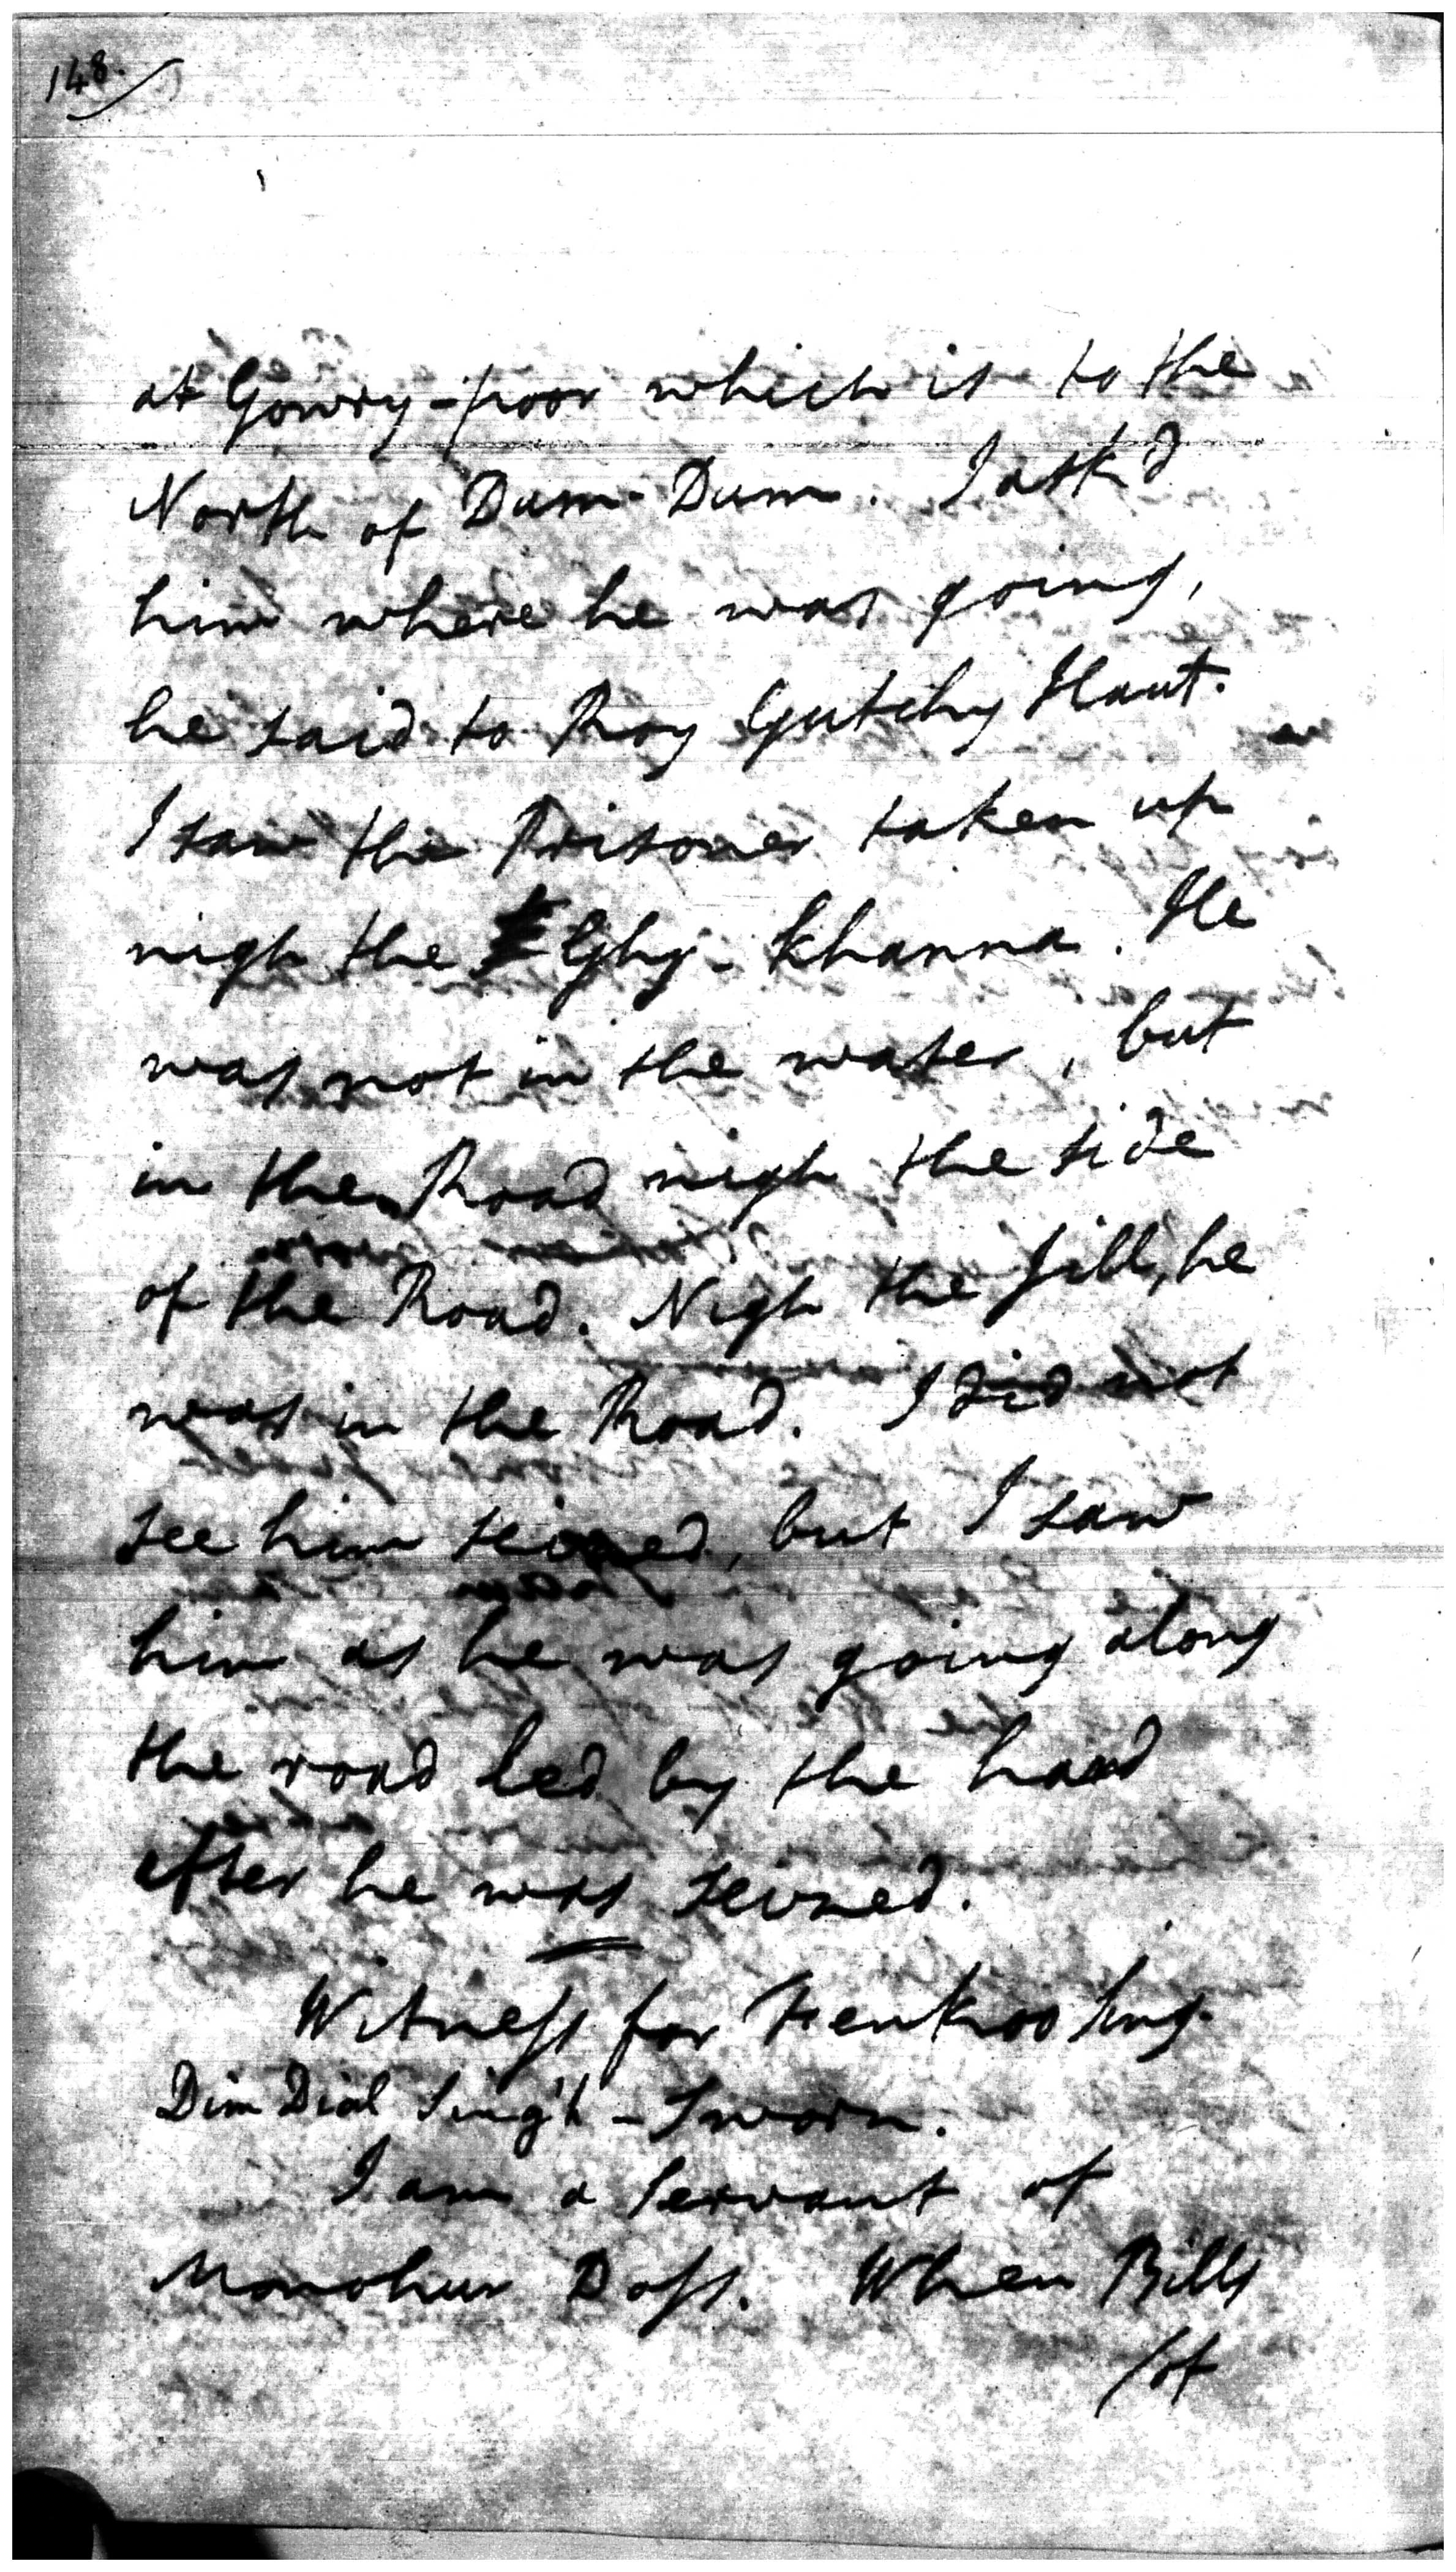 148.
at Gowry-poor which is to the
North of Dum-Dum. I ask'd
him where he was going,
he said to Roy Gutchy Haut.
I saw the Prisoner taken up
nigh the Ghy-Khanna. He
was not in the water, but
in the Road nigh the side
of the Road. Nigh the Jill, he
was in the Road. I did not
see him seized, but I saw
him as he was going along
the road led by the hand
after he was seized.
Witness for Fenkroo Sing.
Dim Dial Sing'h - Sworn.
I am a Servant of
Monohur Doss. When Bills
/of